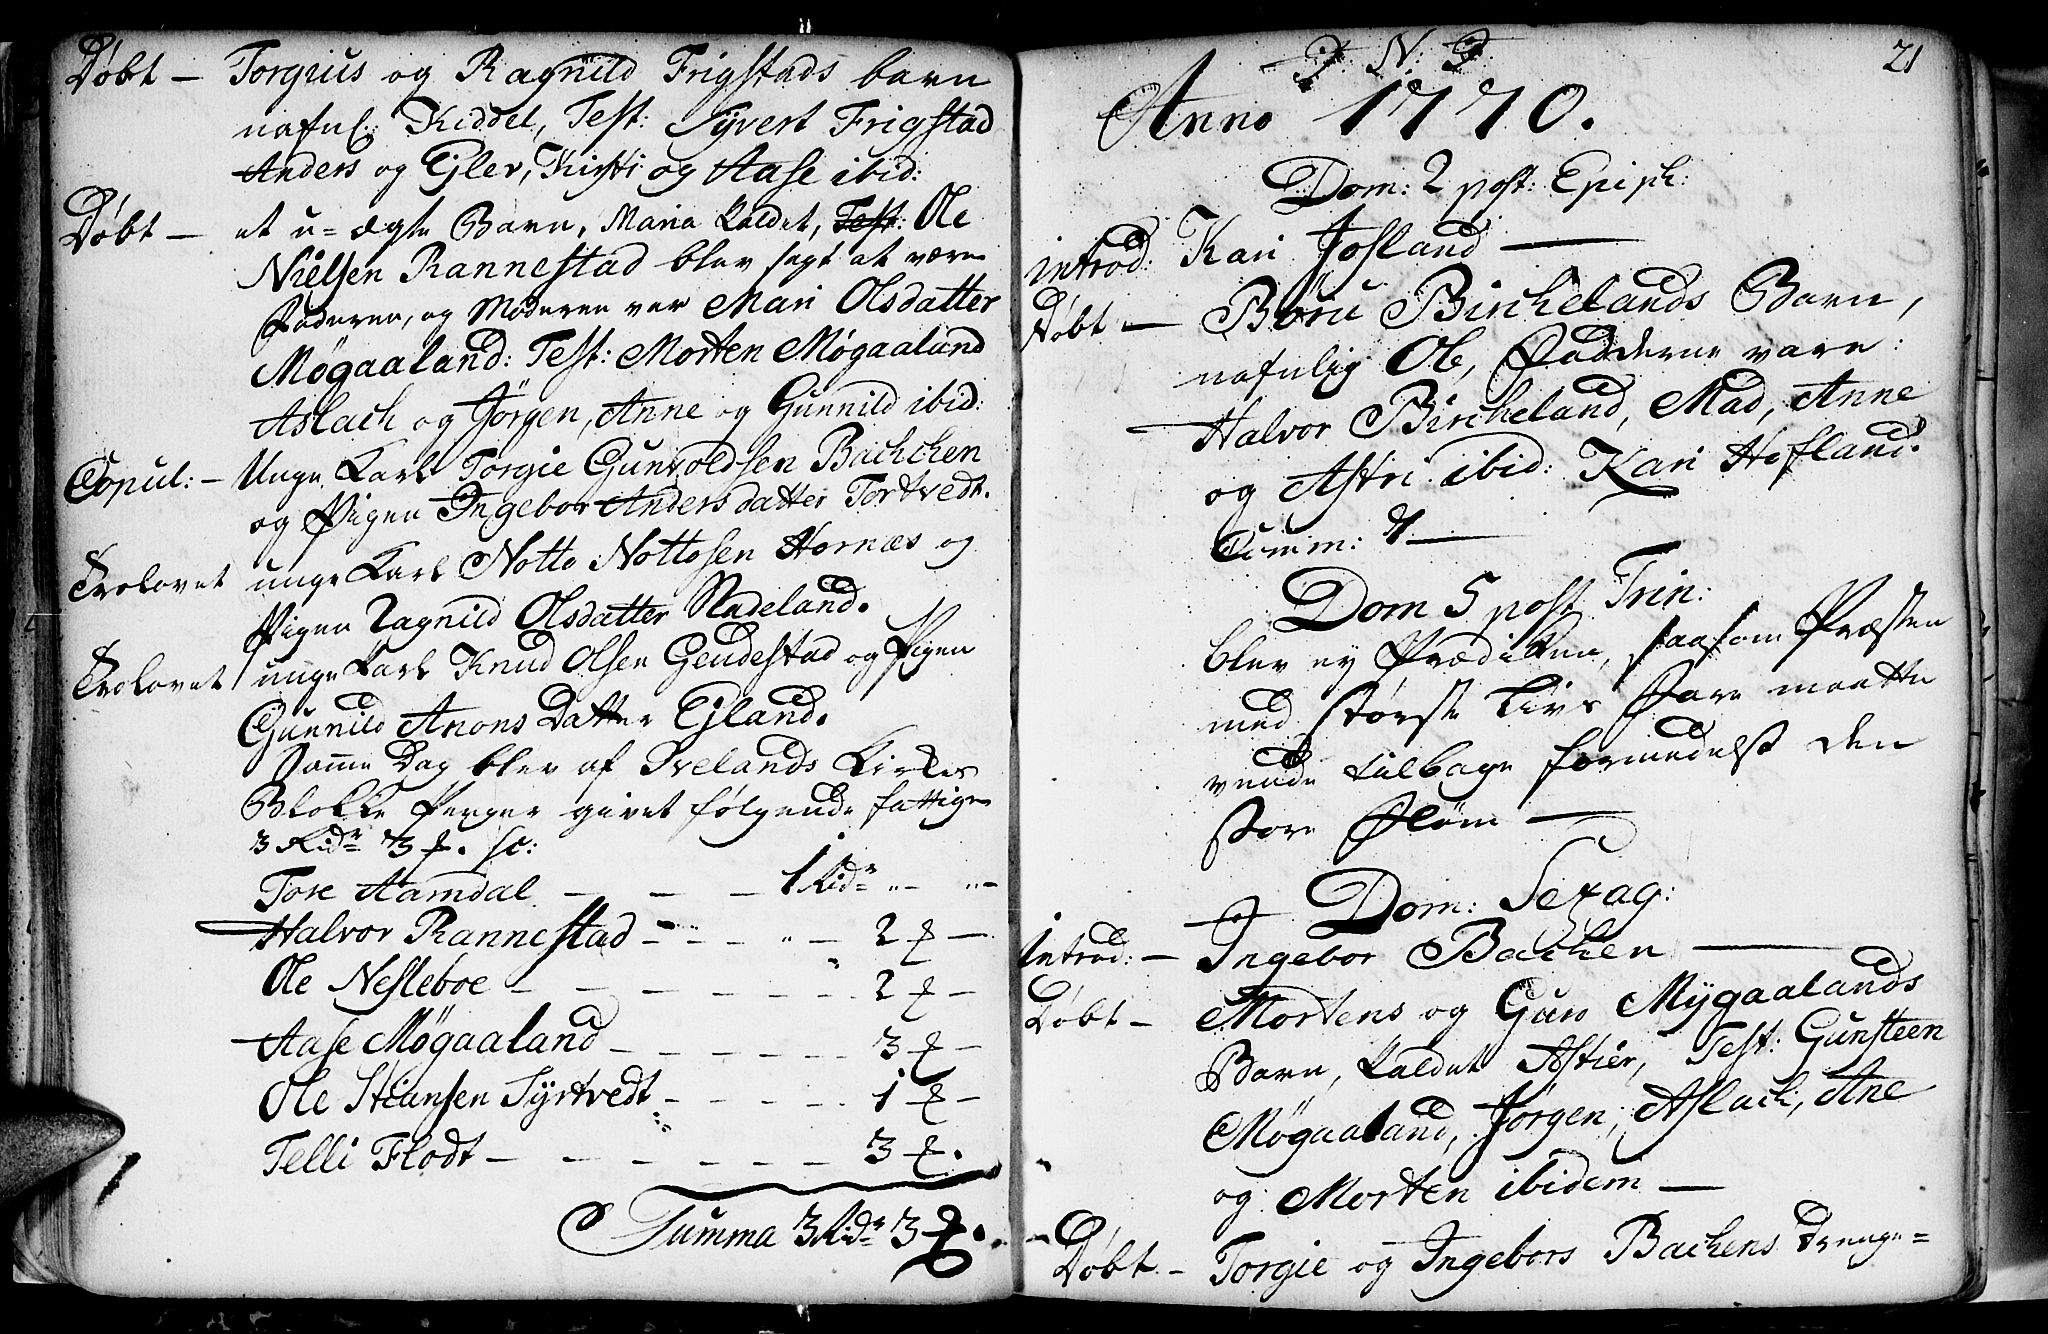 Døbt — Torgius og Ragnild Frigstads barn
nafnl: Kiddel, Test: Syvert Frigstad
Anders og Ejlev, Kirsti og Aase ibid:
Døbt — et u=ægte Barn, Maria kaldet, Test: Ole
Nielsen Rannestad blev sagt at være
Faderen, og Moderen var Mari Olsdatter
Møgaaland: Test: Morten Møgaaland
Aslach og Jørgen, Anne og Gunnild ibid:
Copul: — Unge Karl Torgie Gunvoldsen Bachchen
og Pigen Ingebor Andersdatter Tortvedt.
Trolovet unge Karl Notto Nottosen Hornæs og
Pigen Ragnild Olsdatter Rladeland.
Trolovet unge Karl Knud Olsen Geudestad og Pigen
Gunnild Anons Datter Ejland.
Samme Dag blev af Ivelands Kirkes
Blokke Penger givet følgende fattige
3 Ridr 3 ʄ. sc:
Tore Aamdal — — — 1 Ridr „— „—
Halvor Rannestad — „ — — „ — 2 ʄ —
Ole Nesleboe — — — — — — 2 ʄ —
Aase Møgaaland — — — — — 3 ʄ —
Ole Stiansen Syrtvedt — — — — 1 ʄ —
Telli Flodt — — — — — — 3 ʄ.
Summa 3 Ridr 3 ʄ.
21
J. N. J.
Anno 1770.
Dom: 2 post: Epiph:
introd: Kari Josland —
Døbt — Børu Birchelands Barn,
nafnlig Ole, Fadderne vare:
Halvor Bircheland, Mad, Anne
og Astri ibid: Kari Hofland.
Comm: 7 —
Dom 5 post Trin:
blev ey Prædiken, saasom Præsten
med største Livs Fare maatte
vende tilbage formedelst den
store Fløm —
Dom: Sexag:
Introd: — Ingebor Bachen —
Døbt — Mortens og Guro Mygaalands
Barn, kaldet Astier, Test: Gunsteen
Møgaaland, Jørgen, Aslach, Ane
og Morten ibidem —
Døbt — Torgie og Ingebors Bachens Drenge=